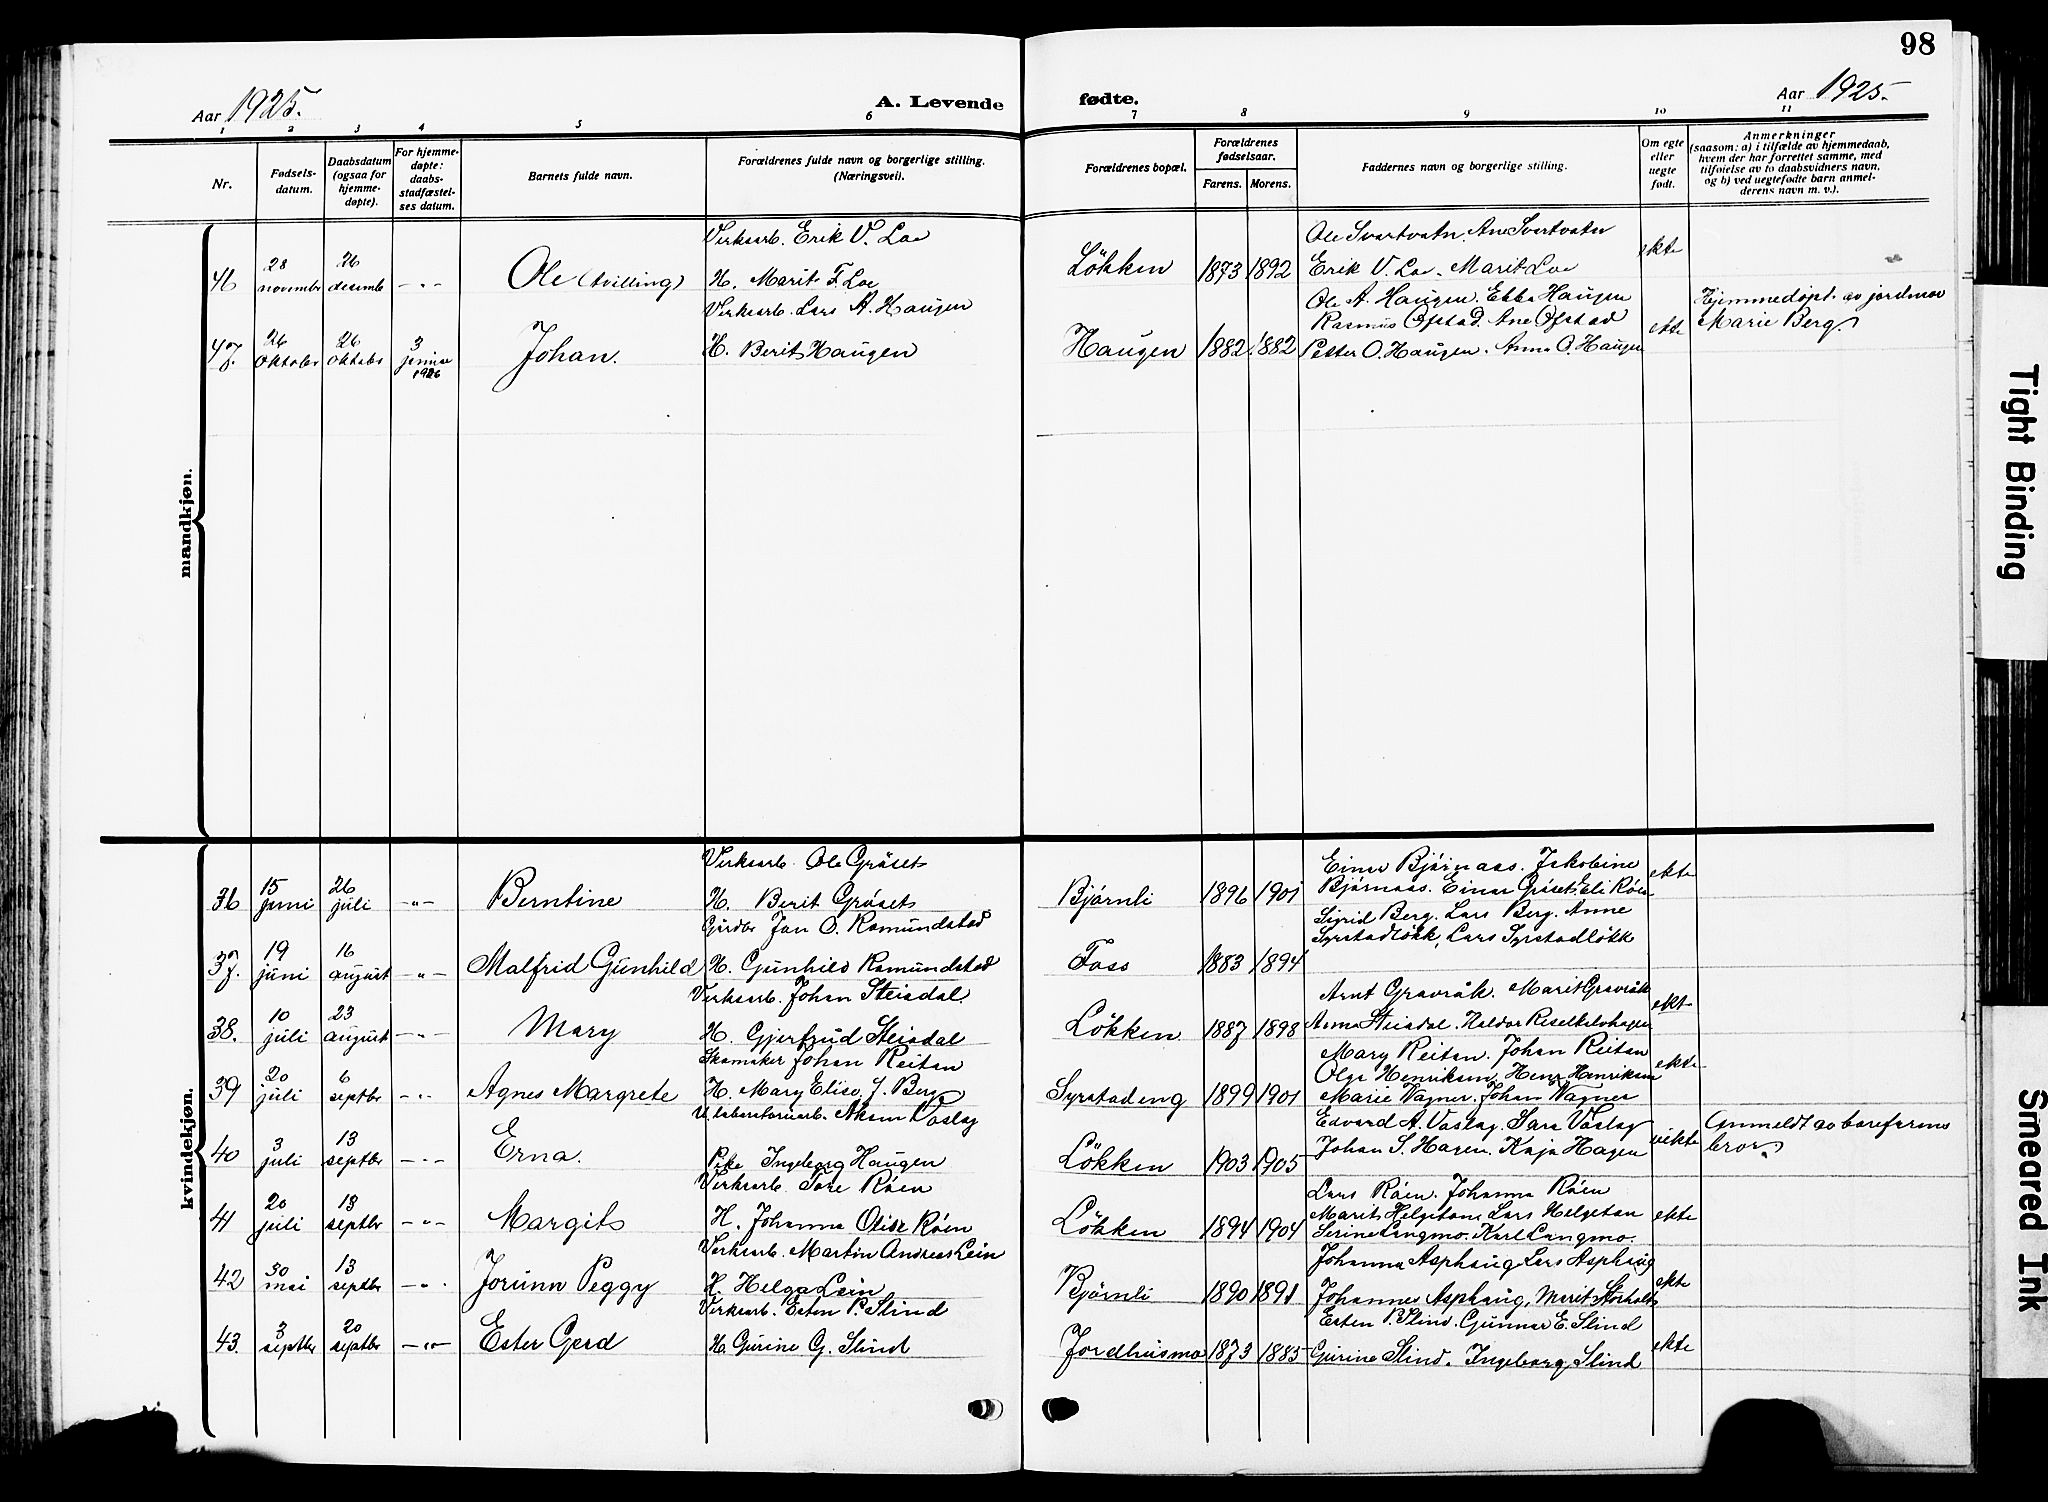 98
Aar 1925.
A. Levende
fødte.
Aar 1925.
1 2 3 4 5 6 7 8 9 10 11
Nr.
Fødsels-
datum.
Daabsdatum
(ogsaa for
hjemme-
døpte).
For hjemme-
døpte:
daabs-
stadfæstel-
ses datum.
Barnets fulde navn.
Forældrenes fulde navn og borgerlige stilling.
(Næringsvei).
Forældrenes bopæl.
Forældrenes
fødselsaar.
Farens. Morens.
Faddernes navn og borgerlige stilling.
Om egte
eller
uegte
født.
Anmerkninger
(saasom: a) i tilfælde av hjemmedaab,
hvem der har forrettet samme, med
tilføielse av to daabsvidners navn,
og b) ved uegtefødte barn anmel-
derens navn m. v.).
mandkjøn.
46
28
november
26
desemb
-"-
Ole (tvilling)
Verksarb. Erik V. Loe
H. Marit F. Loe
Løkken
1873 1892
Ole Svartvatn. Ane Svartvatn
Erik V. Loe. Marit Loe
ekte
47.
26
oktober
26
oktober
3
januar
1926
Johan.
Verksarb. Lars A. Haugen
H. Berit Haugen
Haugen
1882 1882
Ole A. Haugen. Ebba Haugen
Rasmus Ofstad. Ane Ofstad
Petter O. Haugen. Anna O. Haugen
ekte
Hjemmedøpt av jordmor
Marie Berg.
kvindekjøn.
36
15
juni
26
juli
-"-
Berntine
Verksarb. Ole Grøset
H. Berit Grøset
Bjørnli
1896 1901
Einar Bjørnaas. Jakobine
Bjørnaas. Einar Grøset. Eli Røen
ekte
37.
19
juni
16
august
-"-
Malfrid Gunhild
Gardbr Jon O. Romundstad
H. Gunhild Romundstad
Foss
1883 1894
Sigrid Berg. Lars Berg. Anne
Syrstadløkk, Lars Syrstadløkk
38.
10
juli
23
august
-"-
Mary
Verksarb. Johan Steisdal
H. Gjertrud Steisdal
Løkken
1887 1898
Arnt Gravråk. Marit Gravråk
Anna Steisdal. Haldor
ekt-
39
20
juli
6
septbr
-"-
Agnes Margrete
Skomaker Johan Reitan
H. Mary Elise J. Berg
Syrstadeng
1899 1901
Mary Reitan. Johan Reitan
Olga Henriksen. Henr Henriksen
Marie Wagner. Johan Wagner
ekte
40
3
juli
13
septbr
-"-
Erna.
U. laboratoriearb. Aksem Voslag
Pike Ingeborg Haugen
Løkken
1903 1905
Edvard A. Voslag. Sara Voslag
Johan S. Hagen. Kaja Hagen
uekte
Anmeldt av barefarens
bror.
41
20
juli
13
septbr
-"-
Margit
Verksarb. Tore Røen
H. Johanna Olise Røen
Løkken
1894 1904
Lars Røen. Johanna Røen
Marit Helgetan. Lars Helgetan
Serine Langmo. Karl Langmo.
ekte
42
30
mai
13
septbr
-"-
Jorunn Peggy
Verksarb. Martin Andreas Lein
H. Helga Lein
Bjørnli
1890 1891
Johanna Asphaug. Lars Asphaug
Johannes Asphaug, Marit Storholt
ekte
43.
3
septbr
20
septbr
-"-
Ester Gerd
Verksarb. Esten P. Slind
H. Gurine G. Slind
Jordhusmo
1873 1885
Esten P. Slind. Gunnar E. Slind
Gurine Slind. Ingeborg Slind
ekte
Tight Binding
Smeared Ink